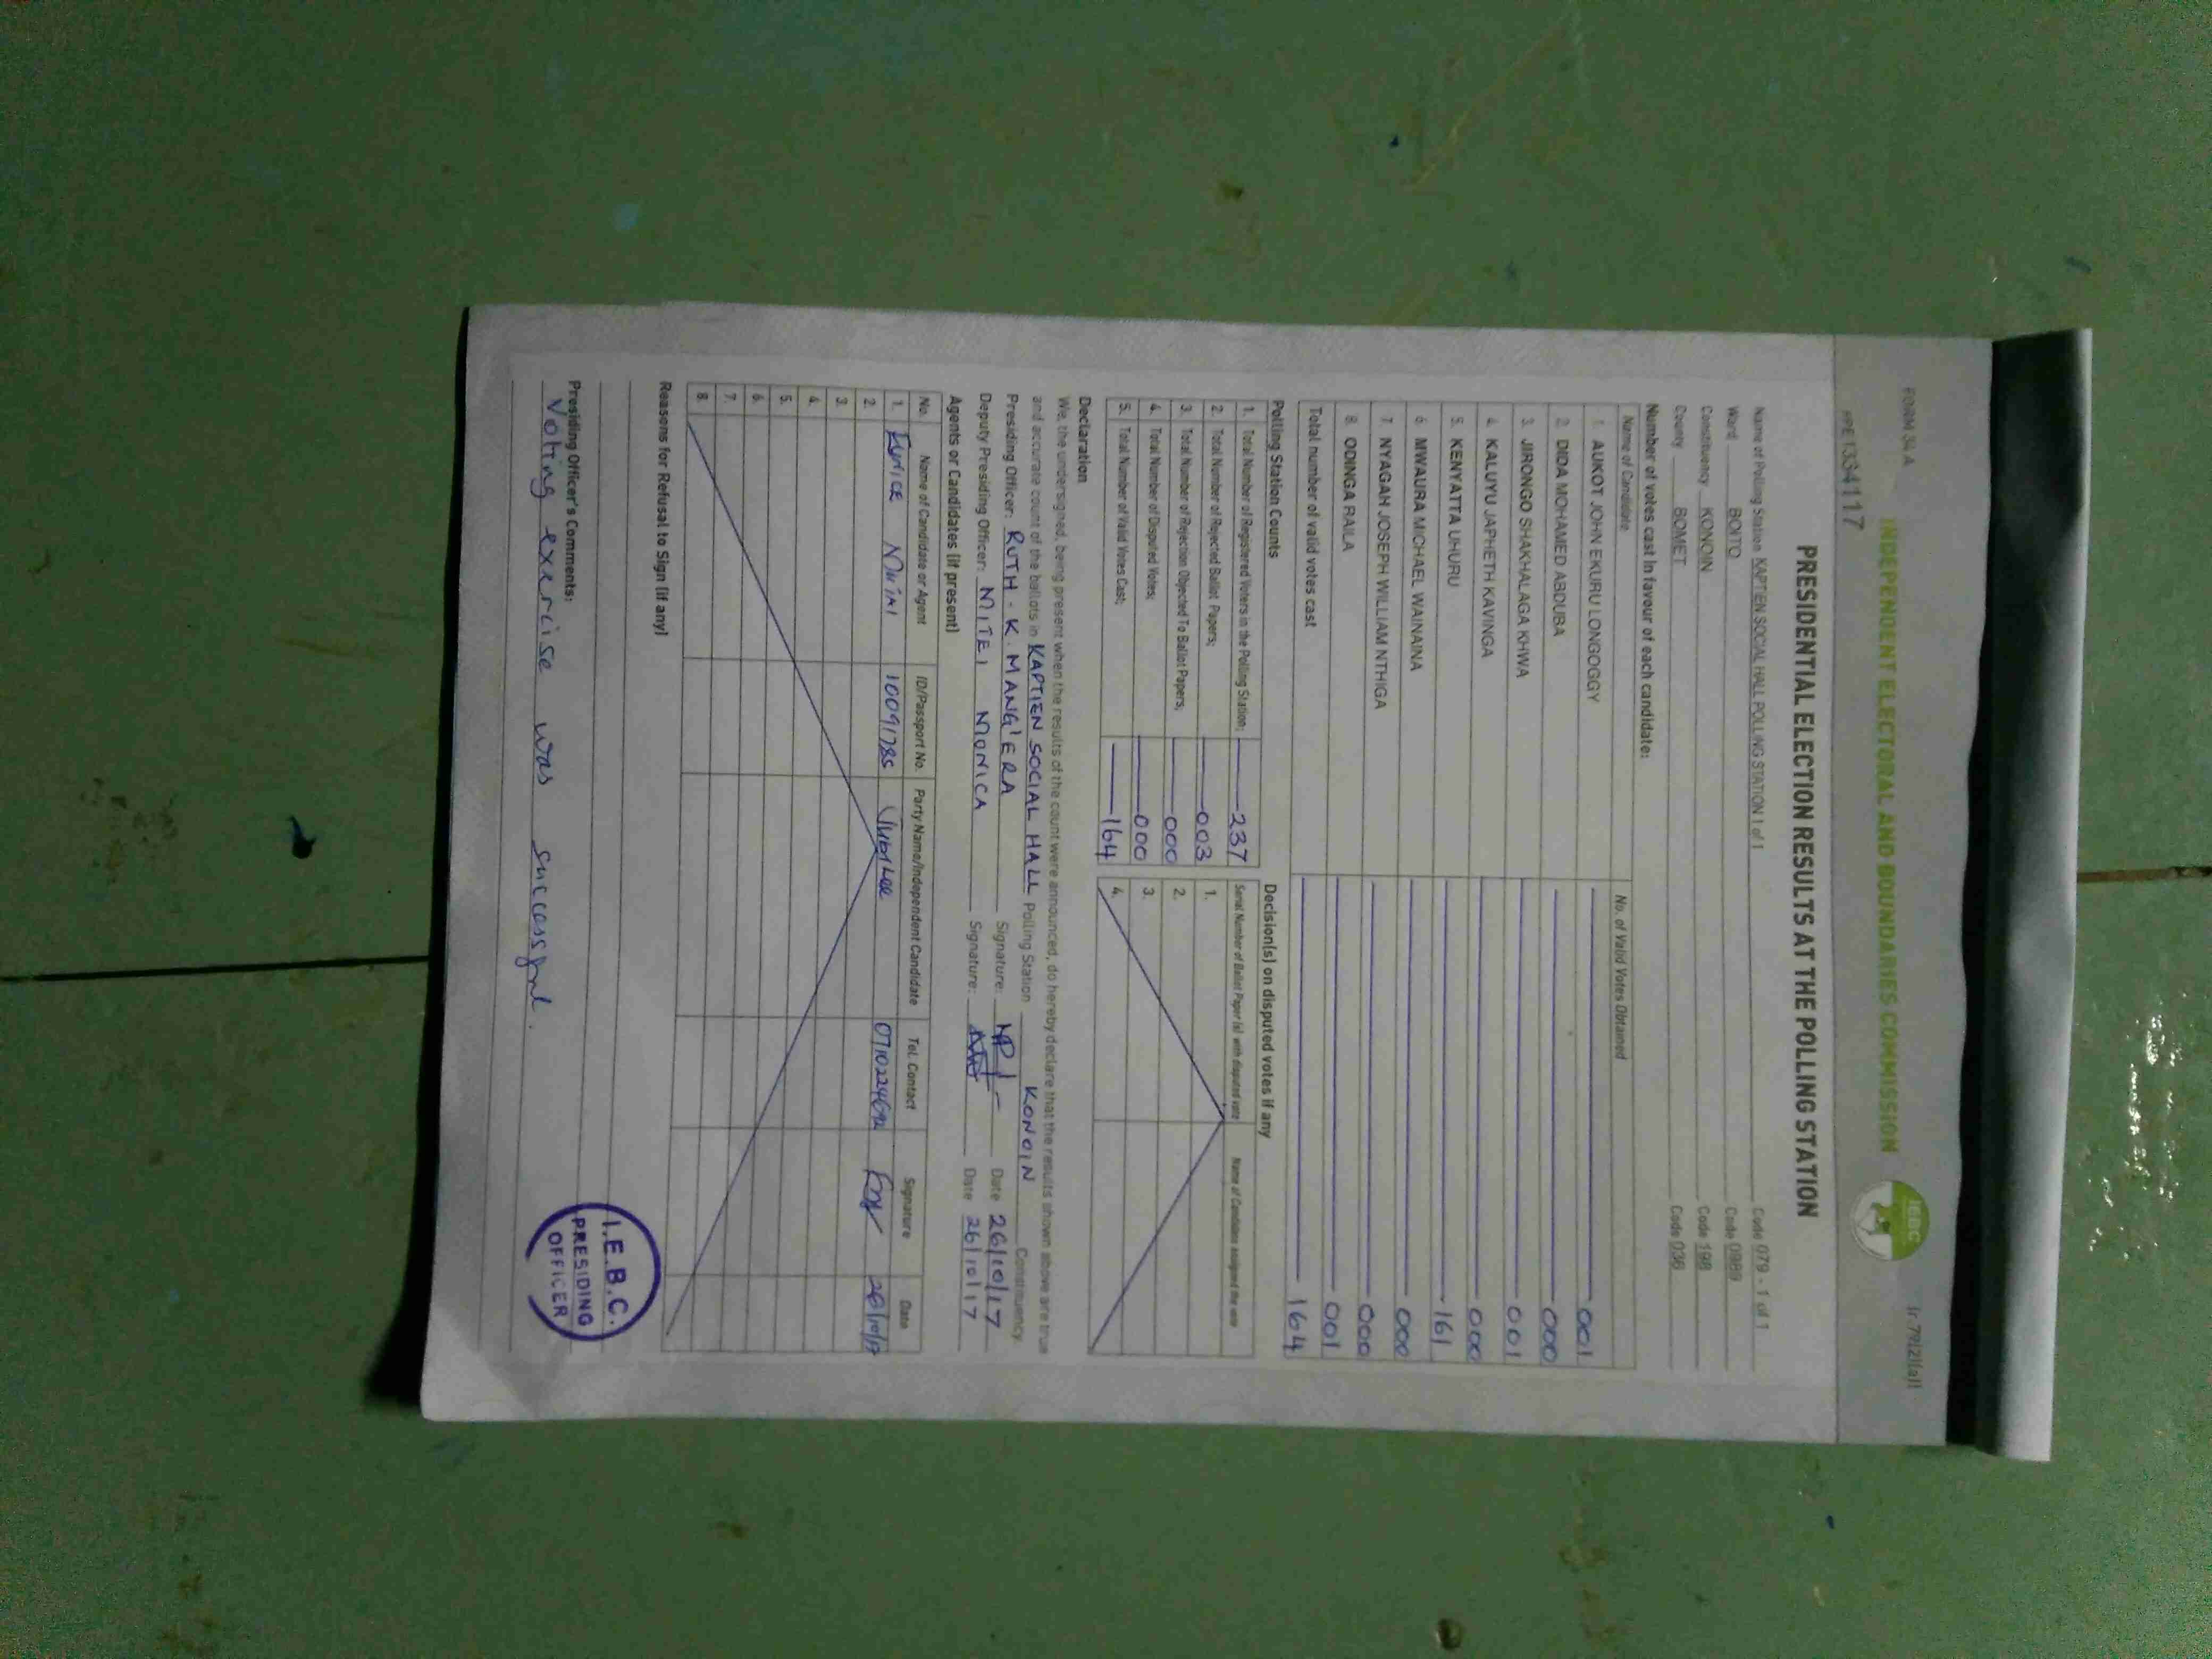 FORM 34 A
(r.79(2)(a))
INDEPENDENT ELECTORAL AND BOUNDARIES COMMISSION
IEBC
PRE1334117
PRESIDENTIAL ELECTION RESULTS AT THE POLLING STATION
Name of Polling Station KAPTIEN SOCIAL HALL POLLING STATION 1 of 1 Code 079 - 1 of 1
Ward BOITO Code 0989
Constituency KONOIN Code 198
County BOMET Code 036
Number of votes cast in favour of each candidate:
Name of Candidate No. of Valid Votes Obtained
1. AUKOT JOHN EKURU LONGOGGY 001
2. DIDA MOHAMED ABDUBA 000
3. JIRONGO SHAKHALAGA KHWA 001
4. KALUYU JAPHETH KAVINGA 000
5. KENYATTA UHURU 161
6. MWAURA MICHAEL WAINAINA 000
7. NYAGAH JOSEPH WILLIAM NTHIGA 000
8. ODINGA RAILA 001
Total number of valid votes cast 164
Polling Station Counts
1. Total Number of Registered Voters in the Polling Station; 237
2. Total Number of Rejected Ballot Papers; 003
3. Total Number of Rejection Objected To Ballot Papers; 000
4. Total Number of Disputed Votes; 000
5. Total Number of Valid Votes Cast; 164
Decision(s) on disputed votes if any
Serial Number of Ballot Paper (s) with disputed vote Name of Candidate assigned the vote
1.
2.
3.
4.
Declaration
We, the undersigned, being present when the results of the count were announced, do hereby declare that the results shown above are true
and accurate count of the ballots in KAPTIEN SOCIAL HALL Polling Station KONOIN Constituency.
Presiding Officer: RUTH - K. MANG'ERA Signature: Date 26/10/17
Deputy Presiding Officer: NITEI MONICA Signature: Date 26/10/17
Agents or Candidates (if present)
No. Name of Candidate or Agent ID/Passport No. Party Name/Independent Candidate Tel. Contact Signature Date
1. EUNICE 10091785 Jubilee 26/10/17
2.
3.
4.
5.
6.
7.
8.
Reasons for Refusal to Sign (if any)
Presiding Officer's Comments:
Voting exercise was successful.
I.E.B.C.
PRESIDING
OFFICER